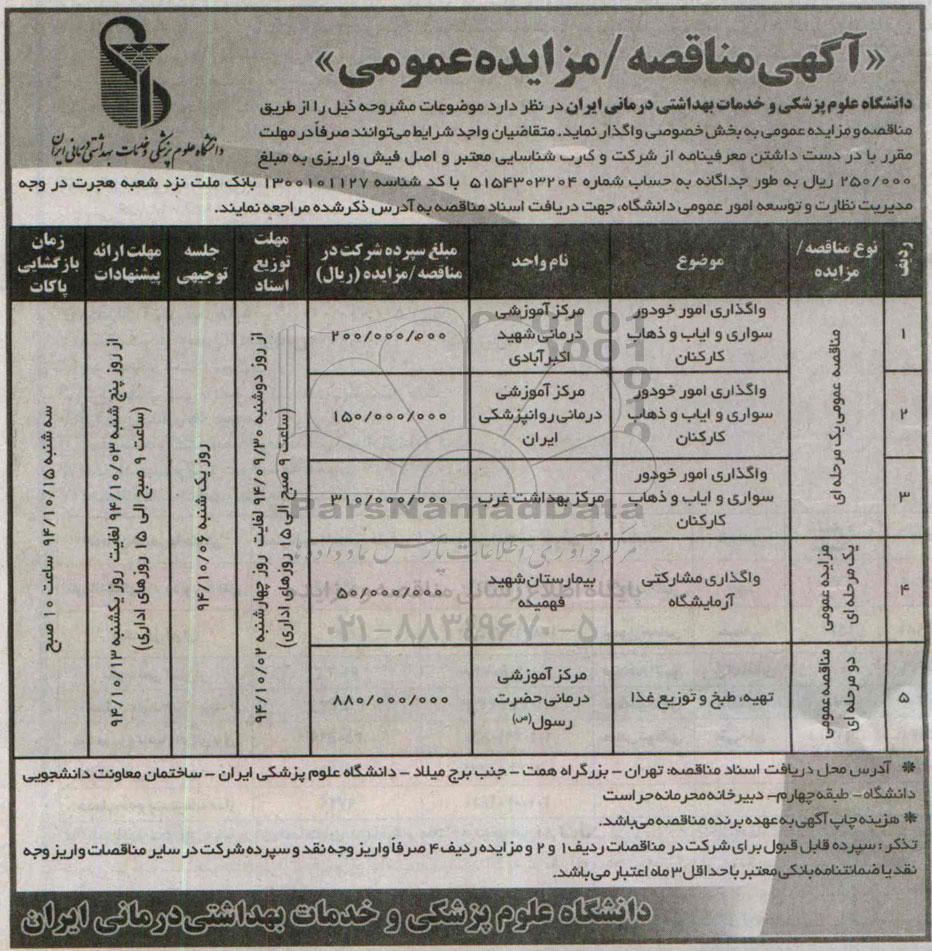 «آگهی مناقصه/مزایده عمومی»
دانشگاه علوم پزشکی و خدمات بهداشتی درمانی ایران
دانشگاه علوم پزشکی و خدمات بهداشتی درمانی ایران در نظر دارد موضوعات مشروحه ذیل را از طریق
مناقصه و مزایده عمومی به بخش خصوصی واگذار نماید. متقاضیان واجد شرایط می‌توانند صرفاً در مهلت
مقرر با در دست داشتن معرفینامه از شرکت و کارت شناسایی معتبر و اصل فیش واریزی به مبلغ
۲۵۰/۰۰۰ ریال به طور جداگانه به حساب شماره ۵۱۵۴۳۰۳۲۰۴ با کد شناسه ۱۳۰۰۱۰۱۱۲۷ بانک ملت نزد شعبه هجرت در وجه
مدیریت نظارت و توسعه امور عمومی دانشگاه، جهت دریافت اسناد مناقصه به آدرس ذکرشده مراجعه نمایند.
ردیف
نوع مناقصه/
مزایده
موضوع
نام واحد
مبلغ سپرده شرکت در
مناقصه/مزایده (ریال)
مهلت
توزیع
اسناد
جلسه
توجیهی
مهلت ارائه
پیشنهادات
زمان
بازگشایی
پاکات
۱
مناقصه عمومی یک مرحله ای
واگذاری امور خودور
سواری و ایاب و ذهاب
کارکنان
مرکز آموزشی
درمانی شهید
اکبرآبادی
۲۰۰/۰۰۰/۰۰۰
از روز دوشنبه ۹۴/۰۹/۳۰ لغایت روز چهارشنبه ۹۴/۱۰/۰۲
(ساعت ۹ صبح الی ۱۵ روزهای اداری)
روز یک شنبه ۹۴/۱۰/۰۶
از روز پنج شنبه ۹۴/۱۰/۰۳ لغایت روز یکشنبه ۹۴/۱۰/۱۳
(ساعت ۹ صبح الی ۱۵ روزهای اداری)
سه شنبه ۹۴/۱۰/۱۵ ساعت ۱۰ صبح
۲
واگذاری امور خودور
سواری و ایاب و ذهاب
کارکنان
مرکز آموزشی
درمانی روانپزشکی
ایران
۱۵۰/۰۰۰/۰۰۰
۳
واگذاری امور خودور
سواری و ایاب و ذهاب
کارکنان
مرکز بهداشت غرب
۳۱۰/۰۰۰/۰۰۰
۴
مزایده عمومی
یک مرحله ای
واگذاری مشارکتی
آزمایشگاه
بیمارستان شهید
فهمیده
۵۰/۰۰۰/۰۰۰
۵
مناقصه عمومی
دو مرحله ای
تهیه، طبخ و توزیع غذا
مرکز آموزشی
درمانی حضرت
رسول(ص)
۸۸۰/۰۰۰/۰۰۰
ParsNamadData
مرکز فرآوری اطلاعات پارس نماد داده ها
۰۲۱-۸۸۳۴۹۶۷۰-۵
* آدرس محل دریافت اسناد مناقصه: تهران - بزرگراه همت - جنب برج میلاد - دانشگاه علوم پزشکی ایران - ساختمان معاونت دانشجویی
دانشگاه - طبقه چهارم - دبیرخانه محرمانه حراست
* هزینه چاپ آگهی به عهده برنده مناقصه می‌باشد.
تذکر: سپرده قابل قبول برای شرکت در مناقصات ردیف ۱ و ۲ و مزایده ردیف ۴ صرفاً واریز وجه نقد و سپرده شرکت در سایر مناقصات واریز وجه
نقد یا ضمانتنامه بانکی معتبر با حداقل ۳ ماه اعتبار می‌باشد.
دانشگاه علوم پزشکی و خدمات بهداشتی درمانی ایران